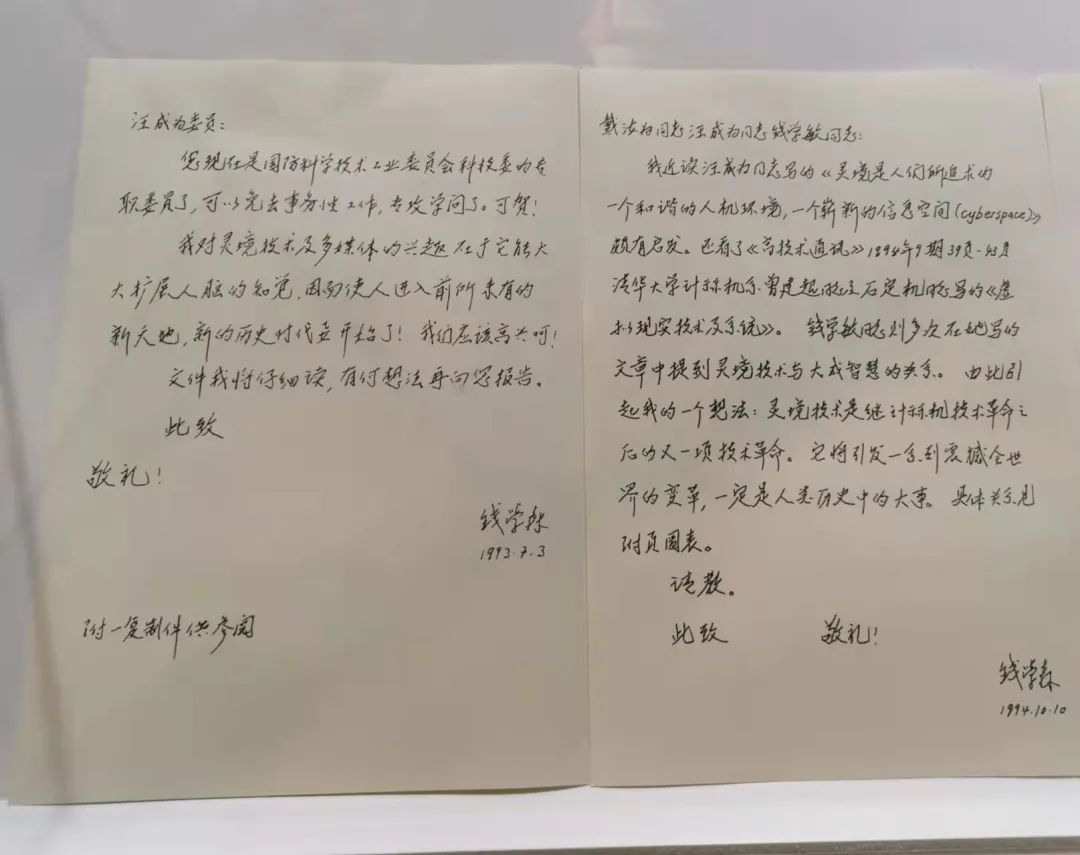 汪成为委员：
您现在是国防科学技术工业委员会科技委的专
职委员了，可以免去事务性工作，专攻学问了。可贺！
我对灵境技术及多媒体的兴趣在于它能大
大扩展人脑的知觉，因而使人进入前所未有的
新天地，新的历史时代要开始了！我们应该高兴呵！
文件我将仔细读，有何想法再向您报告。
此致
敬礼！
钱学森
1993.7.3
附一复制件供参阅
戴汝为同志汪成为同志钱学敏同志：
我近读汪成为同志写的《灵境是人们所追求的
一个和谐的人机环境，一个崭新的信息空间(cyberspace)》
颇有启发。还看了《高技术通讯》1994年9期39页-43页
清华大学计算机系曾建超 及石定机 写的《虚
拟现实技术及系统》。钱学敏 则多次在她写的
文章中提到灵境技术与大成智慧的关系。由此引
起我的一个想法：灵境技术是继计算机技术革命之
后的又一项技术革命。它将引发一系列震撼全世
界的变革，一定是人类历史中的大事。具体关系见
附页图表。
请教。
此致 敬礼！
钱学森
1994.10.10